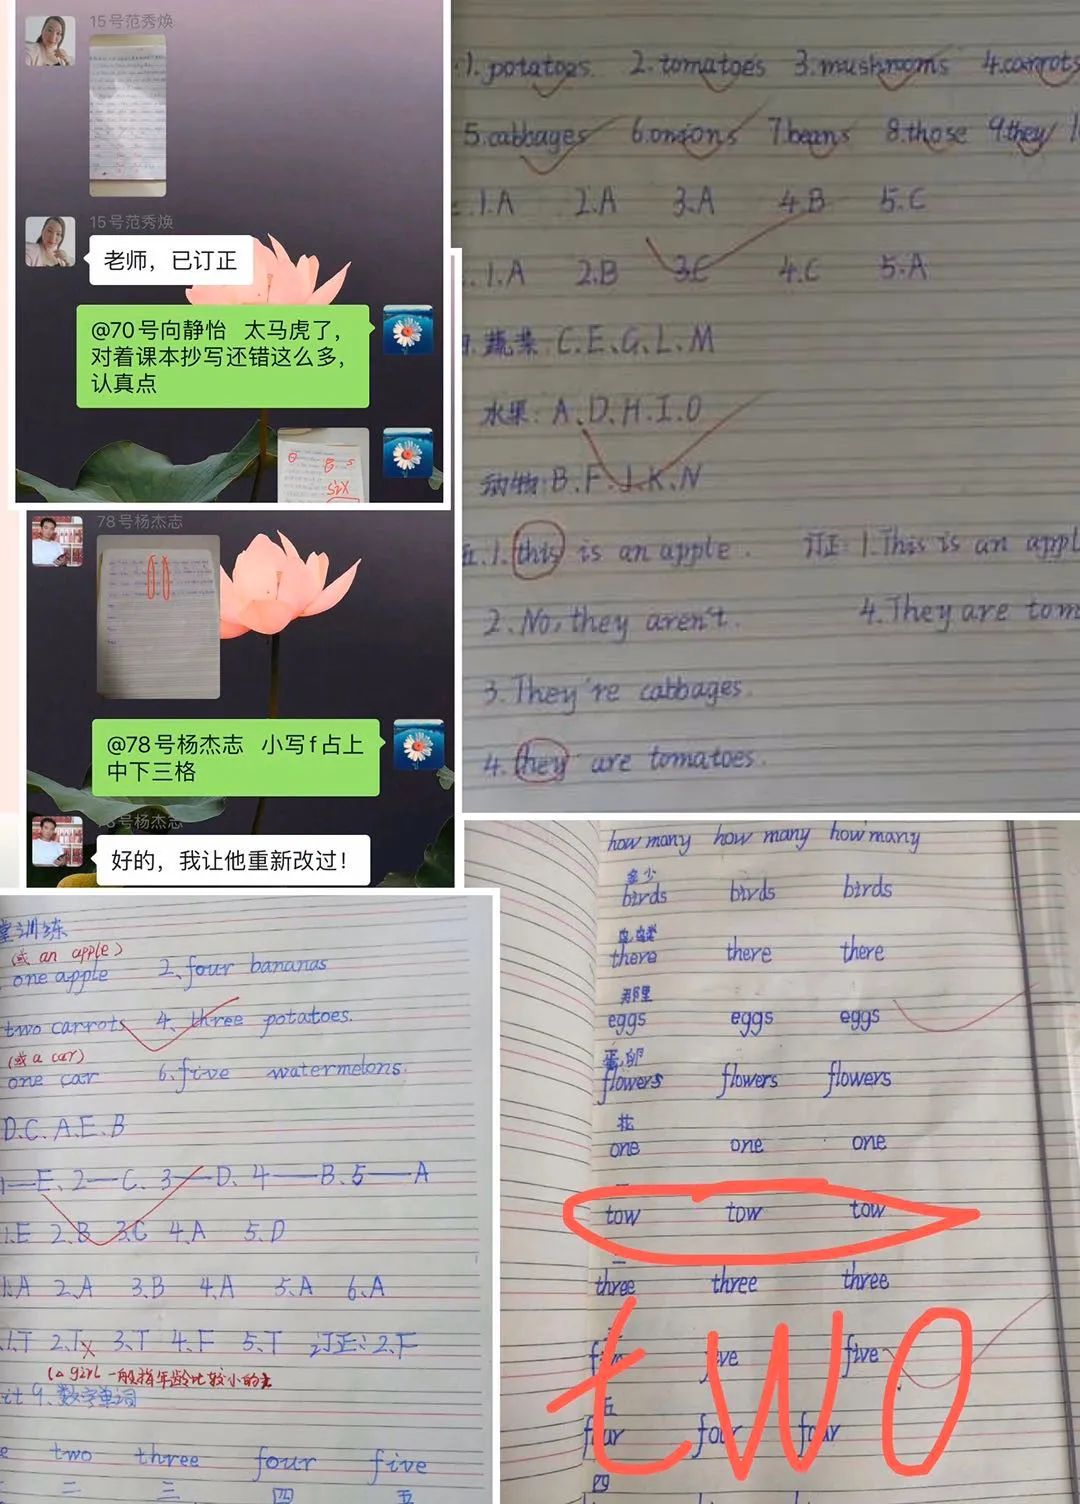 15号范秀焕
15号范秀焕
老师，已订正
@70号向静怡 太马虎了，
对着课本抄写还错这么多，
认真点
six
78号杨杰志
@78号杨杰志 小写f占上
中下三格
78号杨杰志
好的，我让他重新改过！
1.potatoes 2.tomatoes 3.mushrooms 4.carrots
5.cabbages 6.onions 7.beans 8.those 9.they
1.A 2.A 3.A 4.B 5.C
1.A 2.B 3.C 4.C 5.A
蔬菜:C、E、G、L、M
水果:A、D、H、I、O
动物:B、F、J、K、N
五.1.this is an apple. 订正:1.This is an appl
2.No, they aren't. 4.They are tom
3.They're cabbages.
4.they are tomatoes.
堂训练
(或 an apple)
one apple 2、four bananas
two carrots 4、three potatoes.
(或 a car)
one car 6.five watermelons.
D、C、A、E、B
1—E、2—C、3—D、4—B、5—A
1.E 2.B 3.C 4.A 5.D
1.A 2.A 3.B 4.A 5.A 6.A
1.T 2.T 3.T 4.F 5.T 订正:2.F
(a girl 一般指年龄比较小的
it 9、数字单词
two three four five
二 三 四 五
how many how many how many
多少
birds birds birds
鸟,鸟类
there there there
那里
eggs eggs eggs
蛋,卵
flowers flowers flowers
花
one one one
一
tow tow tow
二
three three three
five five five
two
五
four four four
四